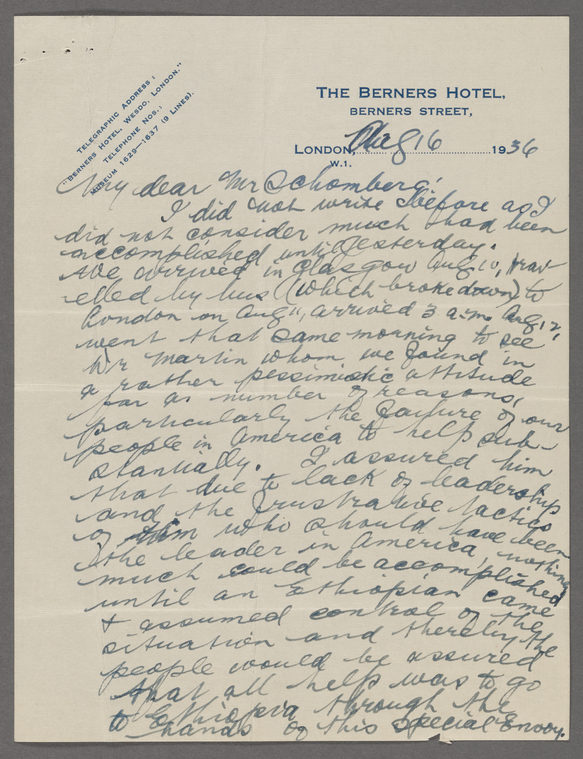 TELEGRAPHIC ADDRESS:
"BERNERS HOTEL, WESDO, LONDON."
TELEPHONE NOS.:
MUSEUM 1629—1637 (9 LINES).
THE BERNERS HOTEL,
BERNERS STREET,
LONDON, Aug 16 1936
W.1.
My dear Mr Schomberg:
I did not write before as I
did not consider much had been
accomplished until yesterday.
We arrived in Glasgow Aug 10, trav
elled by bus (which broke down) to
London on Aug 11, arrived 3 a.m. Aug 12,
went that same morning to see
Dr Martin whom we found in
a rather pessimistic attitude
for a number of reasons,
particularly the failure of our
people in America to help sub-
stantially. I assured him
that due to lack of leadership
and the frustrative tactics
of him who should have been
the leader in America, nothing
much could be accomplished
until an Ethiopian came
& assumed control of the
situation and thereby the
people would be assured
that all help was to go
to Ethiopia through the
hands of this special Envoy.